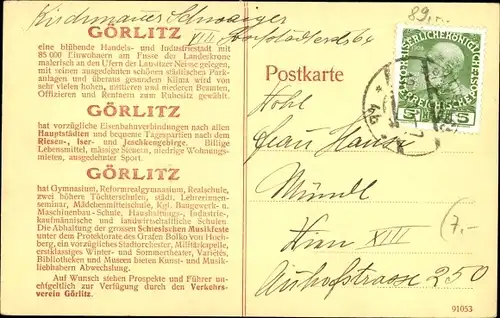 Kirchmauer Schwaiger
VII
89.-
GÖRLITZ
eine blühende Handels- und Industriestadt mit
85 000 Einwohnern am Fusse der Landeskrone
malerisch an den Ufern der Lausitzer Neisse gelegen,
mit seinen ausgedehnten schönen städtischen Park-
anlagen und überaus gesundem Klima wird von
sehr vielen hohen, mittleren und niederen Beamten,
Offizieren und Rentnern zum Ruhesitz gewählt.
GÖRLITZ
hat vorzügliche Eisenbahnverbindungen nach allen
Hauptstädten und bequeme Tagespartien nach dem
Riesen-, Iser- und Jeschkengebirge. Billige
Lebensmittel, mässige Steuern, niedrige Wohnungs-
mieten, ausgedehnter Sport.
GÖRLITZ
hat Gymnasium, Reformrealgymnasium, Realschule,
zwei höhere Töchterschulen, städt. Lehrerinnen-
seminar, Mädchenmittelschule, Kgl. Baugewerk- u.
Maschinenbau-Schule, Haushaltungs-, Industrie-
kaufmännische und landwirtschaftliche Schulen.
Die Abhaltung der grossen Schlesischen Musikfeste
unter dem Protektorate des Grafen Bolko von Hoch-
berg, ein vorzügliches Stadtorchester, Militärkapelle,
erstklassiges Winter- und Sommertheater, Varietés,
Bibliotheken und Museen bieten Kunst- und Musik-
liebhabern Abwechslung.
Auf Wunsch stehen Prospekte und Führer un-
entgeltlich zur Verfügung durch den Verkehrs-
verein Görlitz.
Postkarte
5 5
Frau Hansi
Wien XIII
Auhofstrasse 250
(7.-
91053